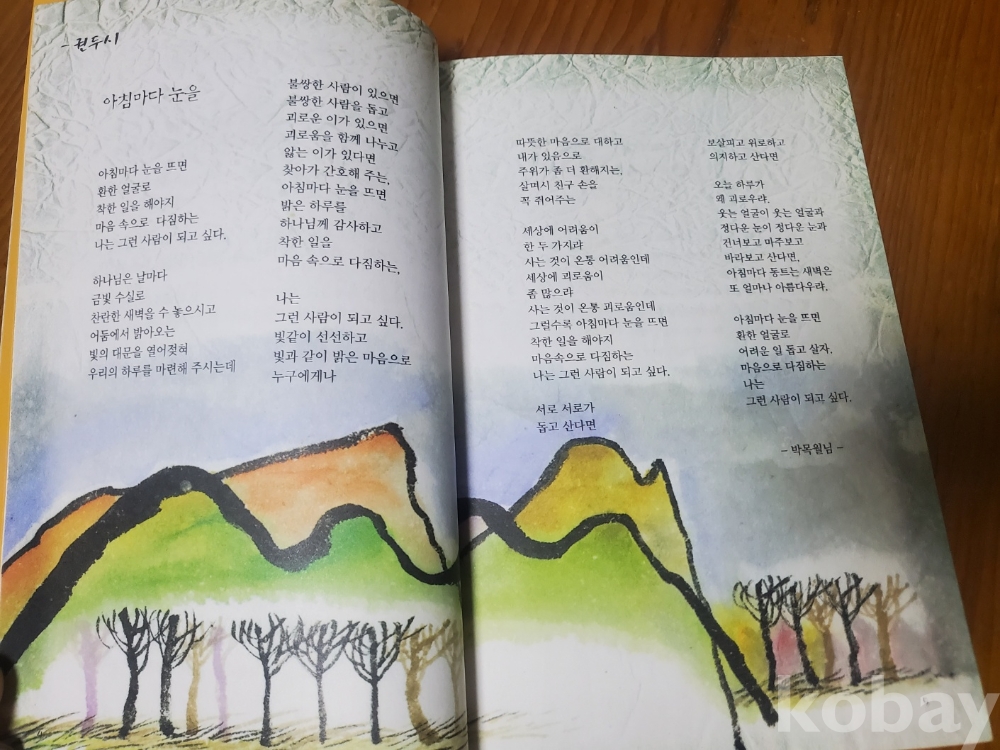 - 권두시
아침마다 눈을
아침마다 눈을 뜨면
환한 얼굴로
착한 일을 해야지
마음 속으로 다짐하는
나는 그런 사람이 되고 싶다.
하나님은 날마다
금빛 수실로
찬란한 새벽을 수 놓으시고
어둠에서 밝아오는
빛의 대문을 열어젖혀
우리의 하루를 마련해 주시는데
불쌍한 사람이 있으면
불쌍한 사람을 돕고
괴로운 이가 있으면
괴로움을 함께 나누고
앓는 이가 있다면
찾아가 간호해 주는,
아침마다 눈을 뜨면
밝은 하루를
하나님께 감사하고
착한 일을
마음 속으로 다짐하는,
나는
그런 사람이 되고 싶다.
빛같이 선선하고
빛과 같이 밝은 마음으로
누구에게나
따뜻한 마음으로 대하고
내가 있음으로
주위가 좀 더 환해지는,
살며시 친구 손을
꼭 쥐어주는
세상에 어려움이
한 두 가지랴
사는 것이 온통 어려움인데
세상에 괴로움이
좀 많으랴
사는 것이 온통 괴로움인데
그럴수록 아침마다 눈을 뜨면
착한 일을 해야지
마음속으로 다짐하는
나는 그런 사람이 되고 싶다.
서로 서로가
돕고 산다면
보살피고 위로하고
의지하고 산다면
오늘 하루가
왜 괴로우랴.
웃는 얼굴이 웃는 얼굴과
정다운 눈이 정다운 눈과
건너보고 마주보고
바라보고 산다면,
아침마다 동트는 새벽은
또 얼마나 아름다우랴.
아침마다 눈을 뜨면
환한 얼굴로
어려운 일 돕고 살자,
마음으로 다짐하는
나는
그런 사람이 되고 싶다.
- 박목월님 -
kobay